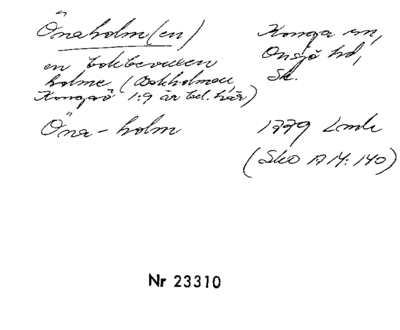 Önaholm(en)
Konga sn,
Onsjö hd,
Sk.
en bokbevuxen
holme (Bokholmen,
Kongaö 1:9 är bel. här)
Öna-holm
1779 Lmk
(Sko A M: 140)
Nr 23310